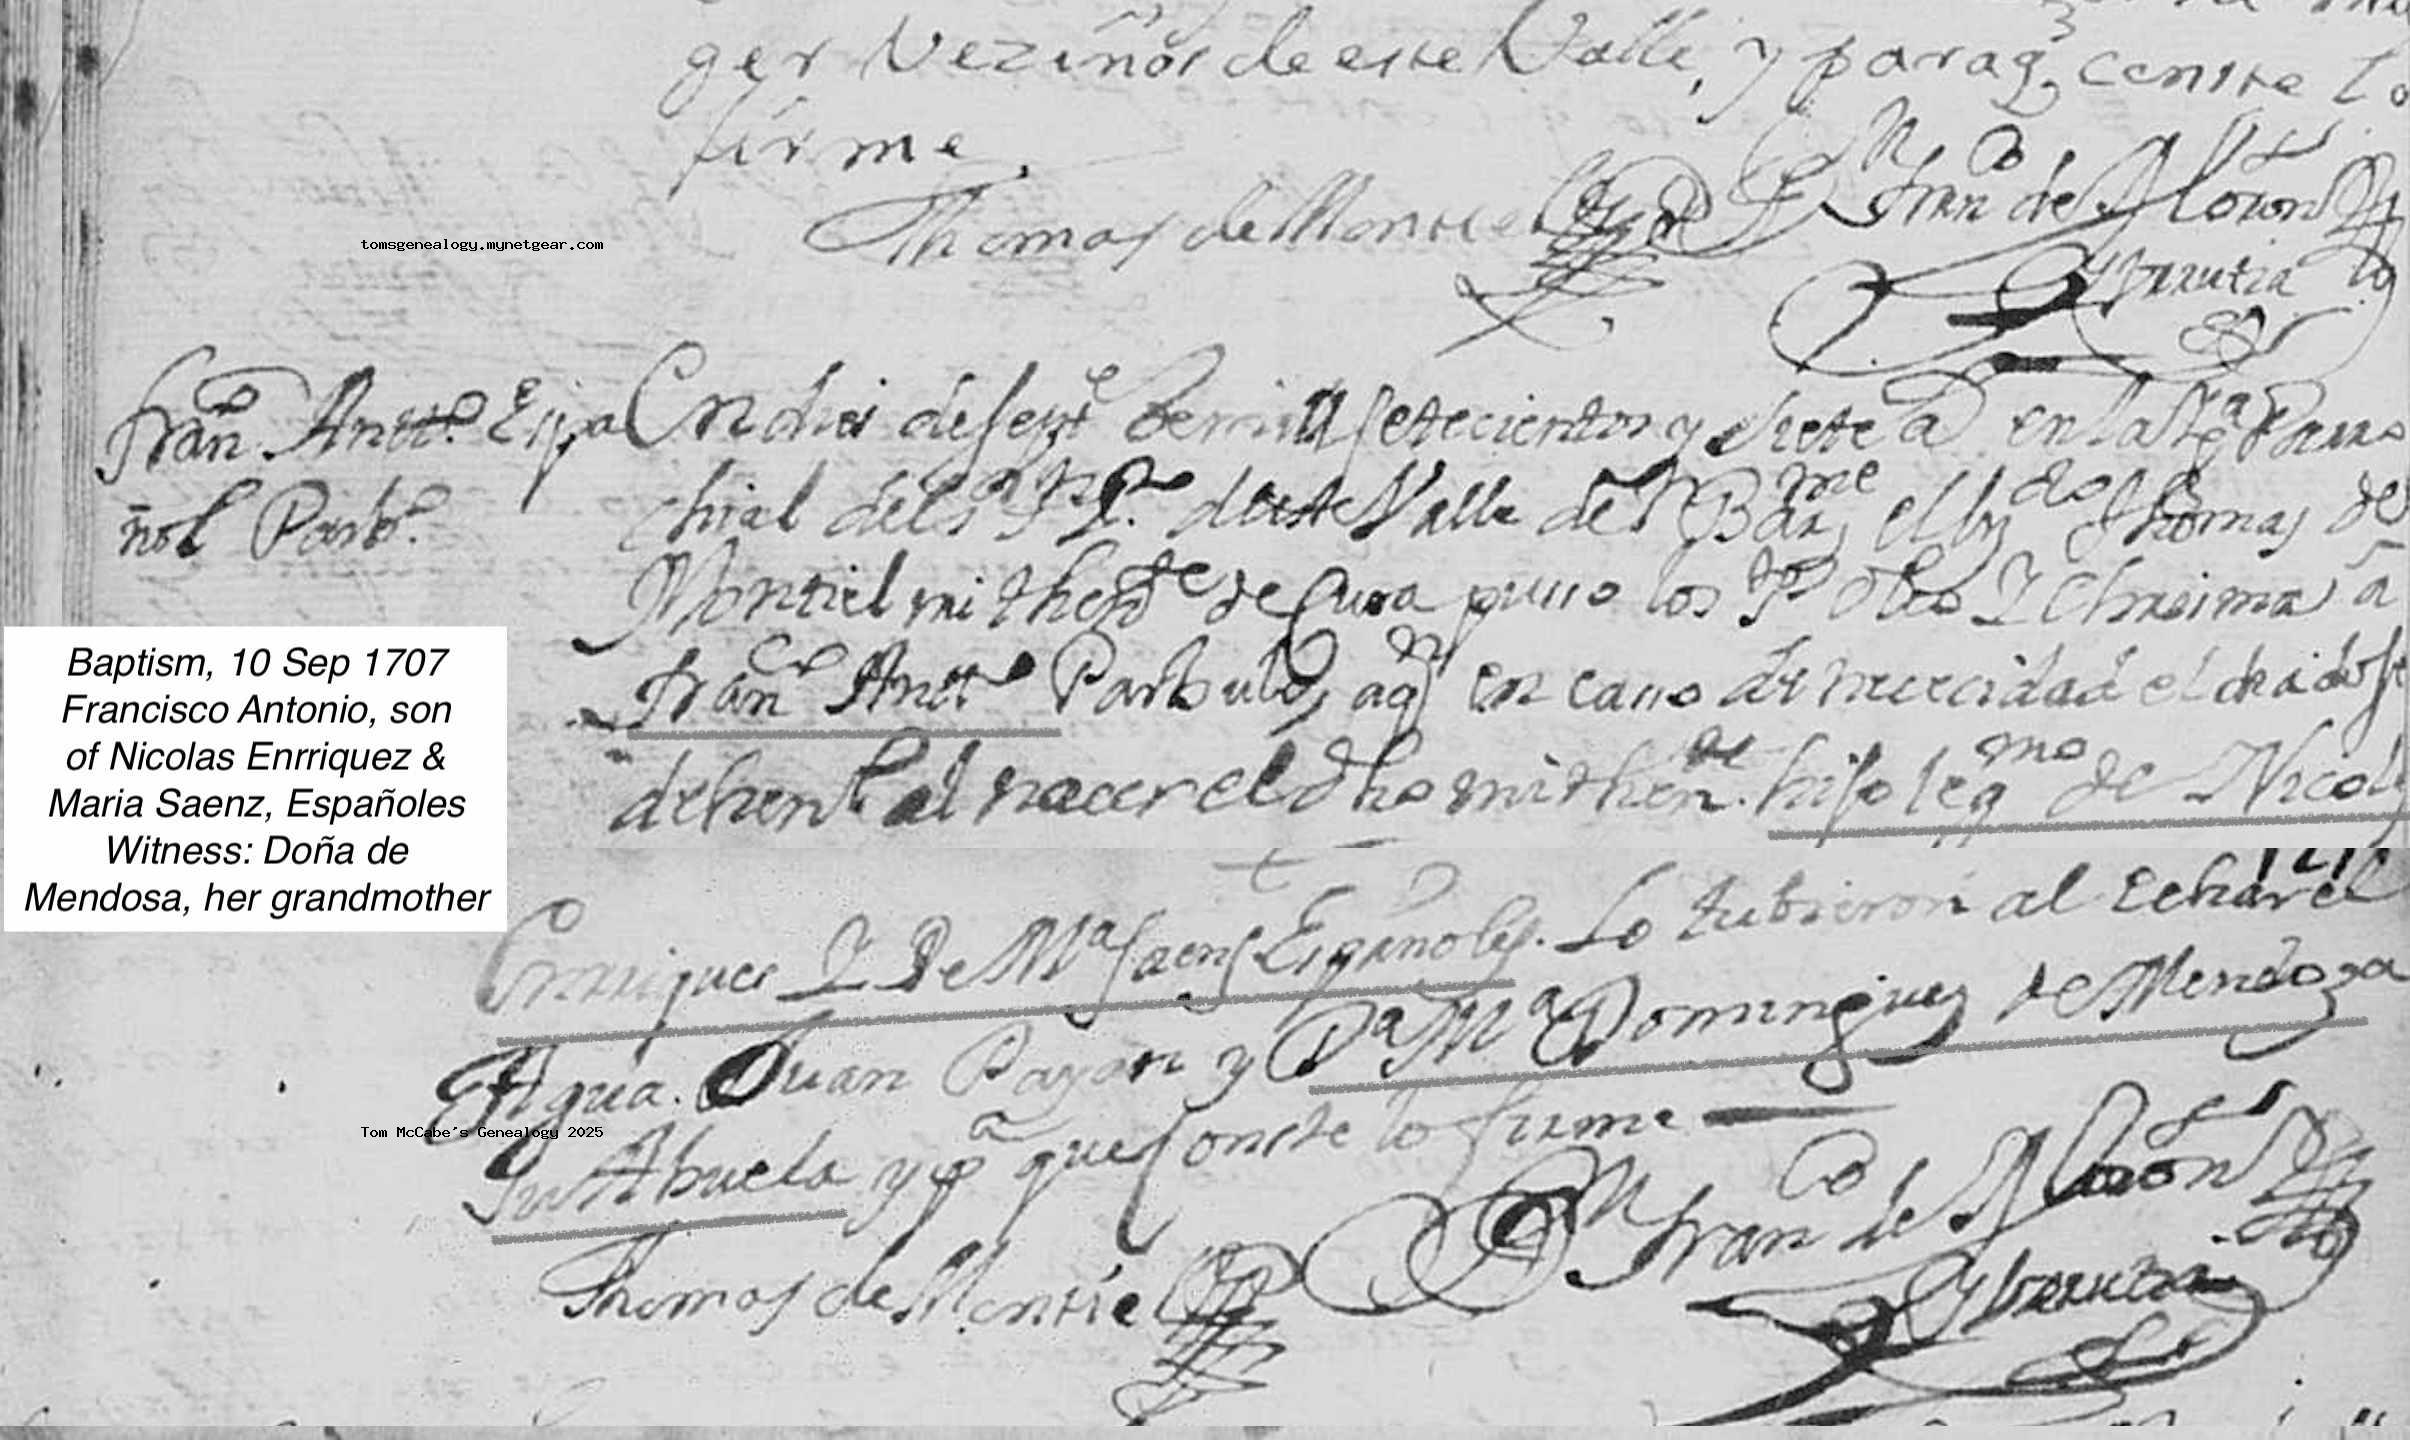 ger Vezinos de este Valle, y paraq, conste lo
firme.
Thomas de Montiel
Fran co de Alarcon
tomsgenealogy.mynetgear.com
Yburrutia
Fran co Antt o Espa
ñol Parb o.
En dies de sept e de mill setecientos y siete a en la Ygª Parro
chial del s r S n P o. deste Valle de S n Bar me el B r Thomas de
Montiel mi then te de Cura puso los S tos oleo Y Chrisma a
Fran co Antt o Parbulo, aq n en casso de nececidad el dia de
al nacer el dho mi then te. hijo leg mo de Nicolas
Baptism, 10 Sep 1707
Francisco Antonio, son
of Nicolas Enrriquez &
Maria Saenz, Españoles
Witness: Doña de
Mendosa, her grandmother
121
Enrriques Y De Mª Saens Españoles. Lo tubieron al Echar el
Agua. Juan Payan y Dª Mª Dominguez de Mendoza
Tom McCabe's Genealogy 2025
Su Abuela y pª que Conste lo firme
Fran co de Alarcon
Thomas de Montiel
Yburrutia